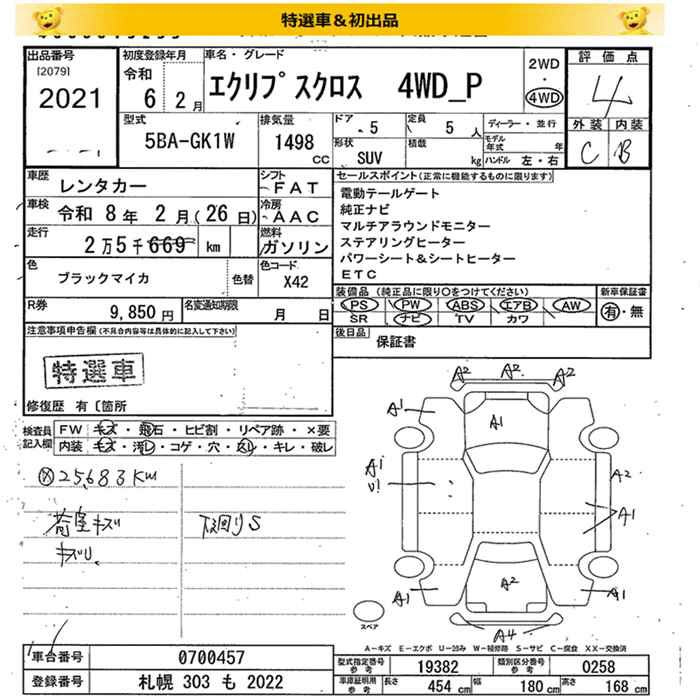 特選車＆初出品
出品番号
[2079]
2021
初度登録年月
令和
6 2月
車名・グレード
エクリプスクロス 4WD_P
2WD
・
4WD
評価点
4
外装 内装
C B
型式
5BA-GK1W
排気量
1498
CC
ドア
5
定員
5 人
ディーラー・並行
形状
SUV
積載
kg
モデル年式 年
ハンドル 左・右
車歴
レンタカー
シフト
FAT
車検
令和 8年 2月(26日)
冷房
AAC
走行
2万5千669 km
燃料
ガソリン
色
ブラックマイカ
色替
色コード
X42
R券
9,850円
名変通知期限
月 日
セールスポイント(正常に機能するものに限ります)
電動テールゲート
純正ナビ
マルチアラウンドモニター
ステアリングヒーター
パワーシート＆シートヒーター
ETC
装備品(純正品に限り○をつけてください)
PS PW ABS エアB AW
SR ナビ TV カワ
新車保証書
有・無
後日品
保証書
注意事項申告欄(不具合内容等は具体的に記入して下さい)
特選車
修復歴 有〔箇所
検査員記入欄
FW キズ・飛石・ヒビ割・リペア跡・×要
内装 キズ・汚レ・コゲ・穴・スレ・キレ・破レ
ⓧ25,683KM
荷室キズ
キズU.
下回りS
A2 A2 A2
A1
A1
A1
U1
A2
A1
A2
A1
A1
A4
スペア
A-キズ E-エクボ U-凹み W-補修跡 S-サビ C-腐食 XX-交換済
車台番号
0700457
登録番号
札幌 303 も 2022
型式指定番号
19382
類別区分番号
0258
車庫証明用参考
長さ 454 cm
幅 180 cm
高さ 168 cm